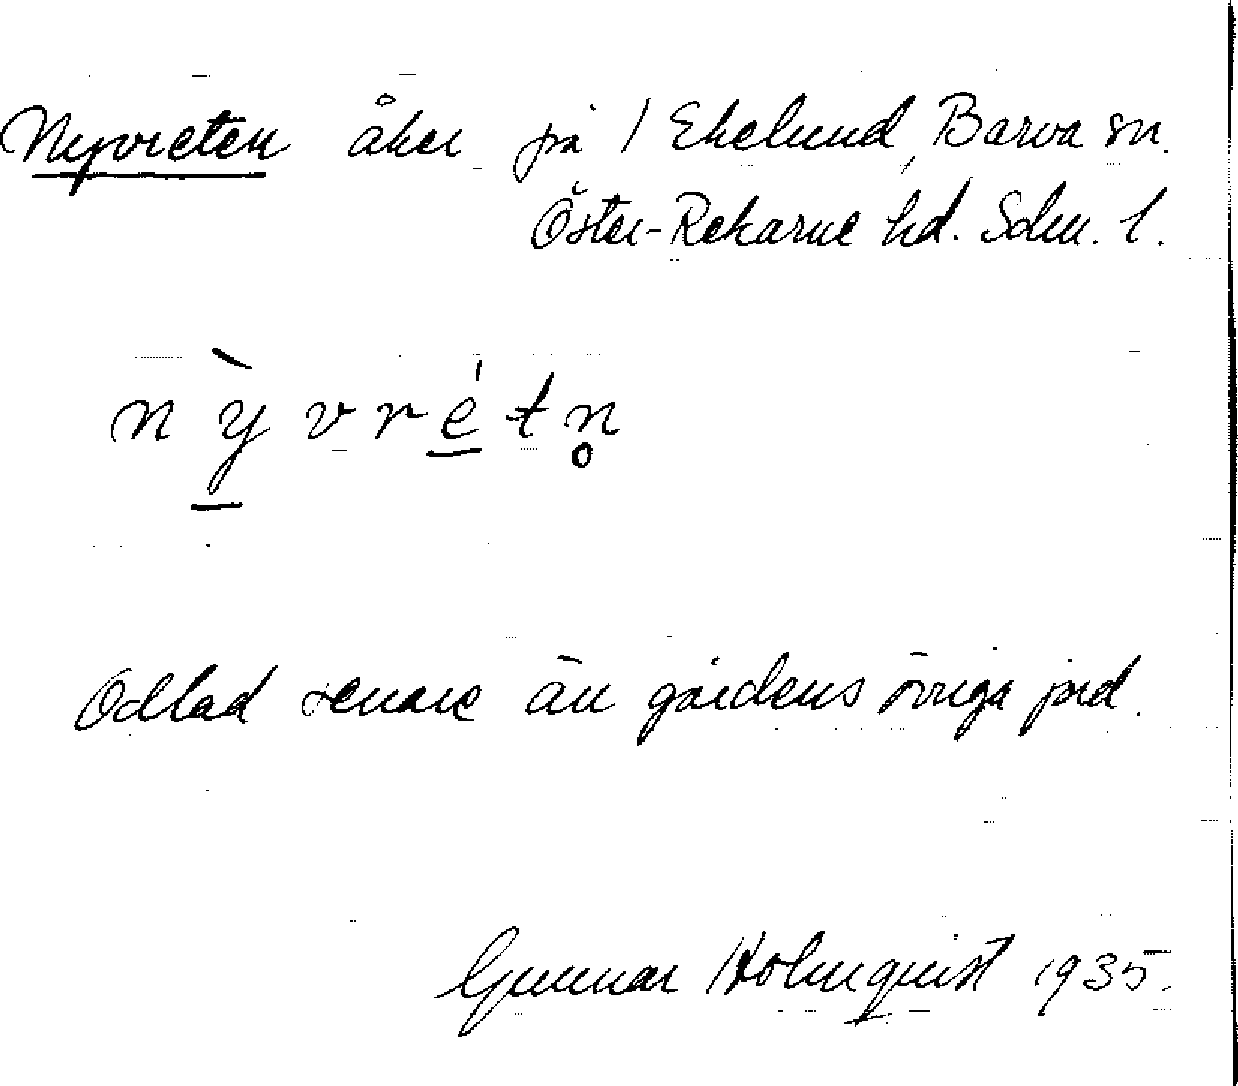 Nyvreten åker på / Ekelund, Barva sn.
Öster-Rekarne hd. Sdm. l.
n ỳ̲ v r é̲ t n̥
Odlad senare än gårdens övriga jord.
Gunnar Holmquist 1935.